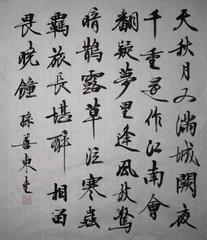 天秋月又滿城闕夜
千重還作江南會
翻疑夢里逢風枝驚
暗鵲露草泣寒蟲
羈旅長堪醉相留
畏曉鐘 孫善東書